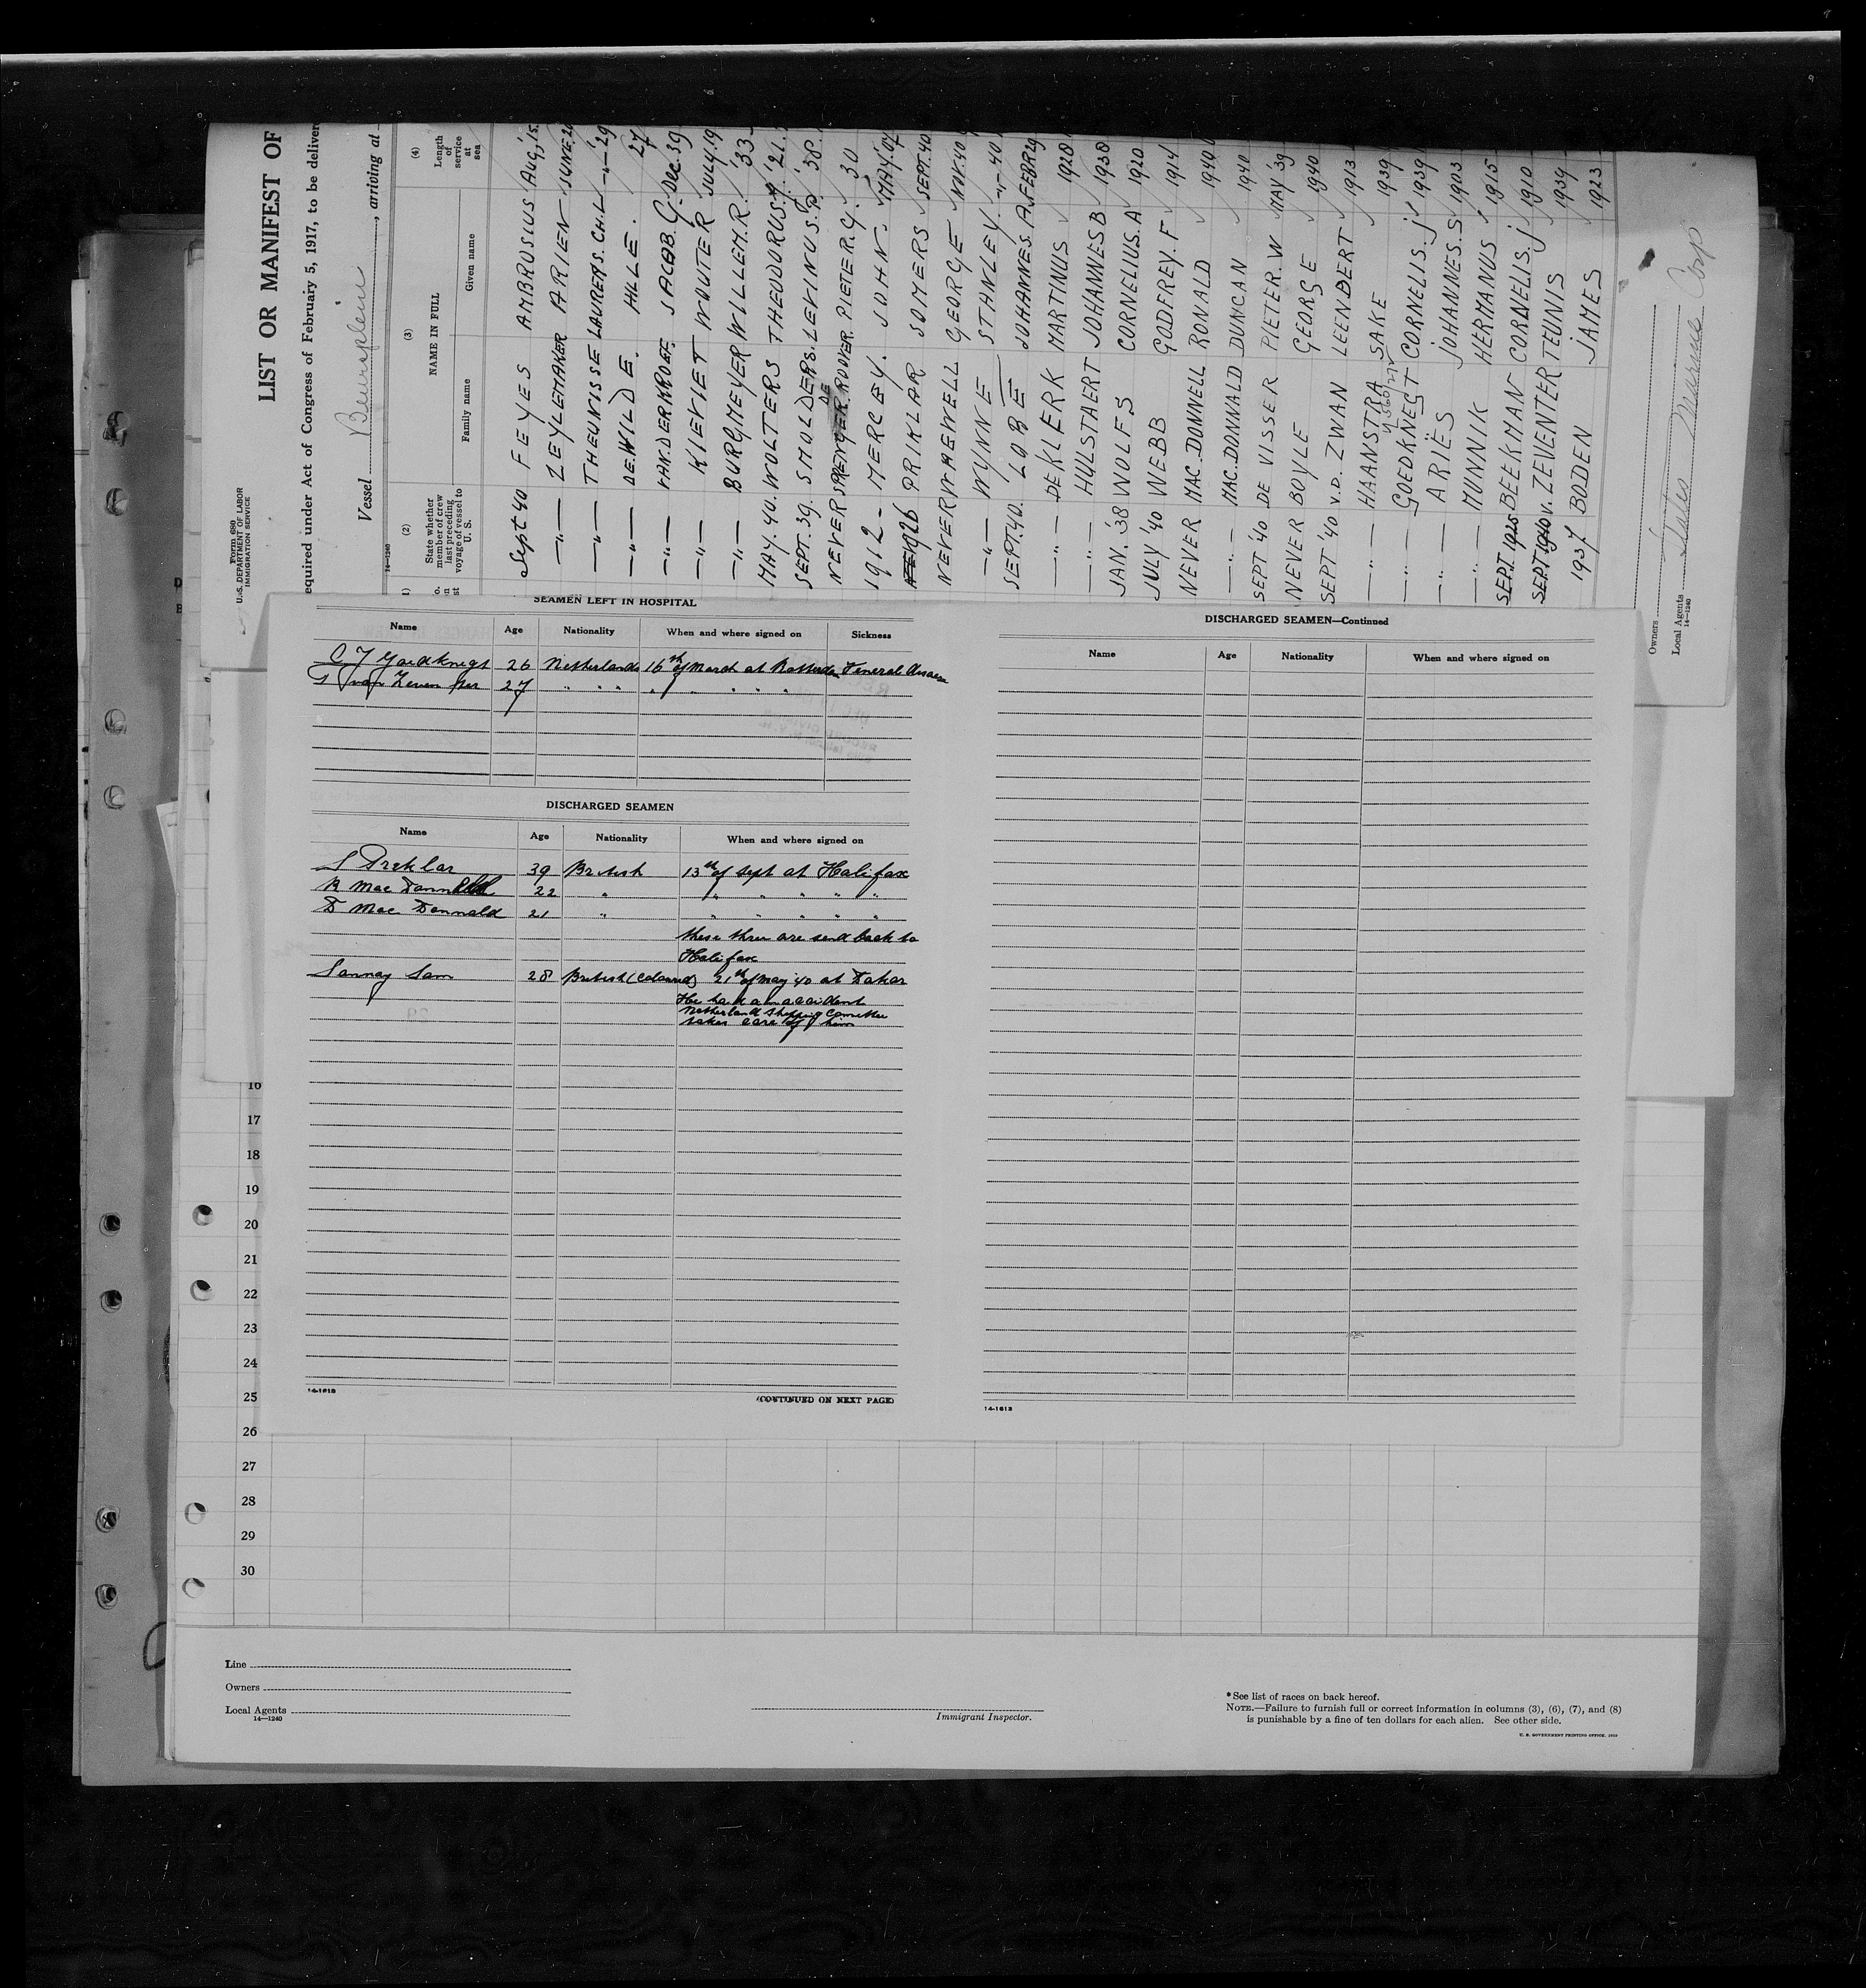 Form 680
U. S. DEPARTMENT OF LABOR
IMMIGRATION SERVICE
LIST OR MANIFEST OF
equired under Act of Congress of February 5, 1917, to be deliver
Vessel Beursplein, arriving at
14—1240
(2) (3) (4)
State whether member of crew last preceding voyage of vessel to U. S.
NAME IN FULL
Family name Given name
Length of service at sea
Sept 40 FEYES AMBROSIUS AUG, '15
—"— ZEYLEMAKER ARIEN JUNE 20
—"— THEUNISSE LAURENS. CH.L —"— '29
—"— DE.WILDE. HILLE. 27
—"— VAN.DERKROEF. JACOB. G. Dec. 39
—"— KIEVIET WOUTER JULY.19
—"— BURGMEYER WILLEM.R. '33
MAY. 40. WOLTERS THEUDORUS. '21.
SEPT. 39. SMOLDERS. LEVINUS. P. '38
NEVER DE ROOVER. PIETER. G. 30
1912 — MERCEY. JOHN. MAY.'07
1926 PRIKLAR SOMERS SEPT. 40
NEVER MAEWELL GEORGE NOV. 40
—"— WYNNE STANLEY. —"— 40
SEPT. 40. LOBÉ JOHANNES. A. FEBR 29
—"— DEKLERK MARTINUS 1928
—"— HULSTAERT JOHANNES B 1938
JAN. '38 WOLFS CORNELIUS. A 1920
JULY '40 WEBB GODFREY. F 1914
NEVER MAC. DONNELL RONALD 1940
—"— MAC. DONNALD DUNCAN 1940
SEPT '40 DE VISSER PIETER. W MAY '39
NEVER BOYLE GEORGE 1940
SEPT '40 V.D. ZWAN LEENDERT 1913
—"— HAANSTRA SAKE 1939
—"— GOEDKNEGT CORNELIS. J 1939
—"— ARIËS JOHANNES. S 1903
—"— MUNNIK HERMANUS 1915
SEPT 1925 BEEKMAN CORNELIS. J 1910
SEPT 1940 v. ZEVENTER TEUNIS 1939
1937 BODEN JAMES 1923
Owners
Local Agents States Marine Corp
14—1240
SEAMEN LEFT IN HOSPITAL
Name Age Nationality When and where signed on Sickness
C J Goedknegt 26 Netherlands 16th of March at Rotterdam Veneral disease
T van Zeven ter 27 " " " " " " " "
DISCHARGED SEAMEN
Name Age Nationality When and where signed on
S Preklar 39 British 13th of Sept at Halifax
R Mac Donnell 22 " " " " " "
D Mac Donnald 21 " " " " " "
these three are send back to
Halifax
Sannay Sam 28 British (coloured) 21th of May '40 at Dakar
He had an accident
Netherland Shipping Comettee
takes care of him
14-1613
(CONTINUED ON NEXT PAGE)
DISCHARGED SEAMEN—Continued
Name Age Nationality When and where signed on
14-1613
16
17
18
19
20
21
22
23
24
25
26
27
28
29
30
Line
Owners
Local Agents
14—1240
Immigrant Inspector.
* See list of races on back hereof.
NOTE.—Failure to furnish full or correct information in columns (3), (6), (7), and (8)
is punishable by a fine of ten dollars for each alien. See other side.
U. S. GOVERNMENT PRINTING OFFICE. 1939